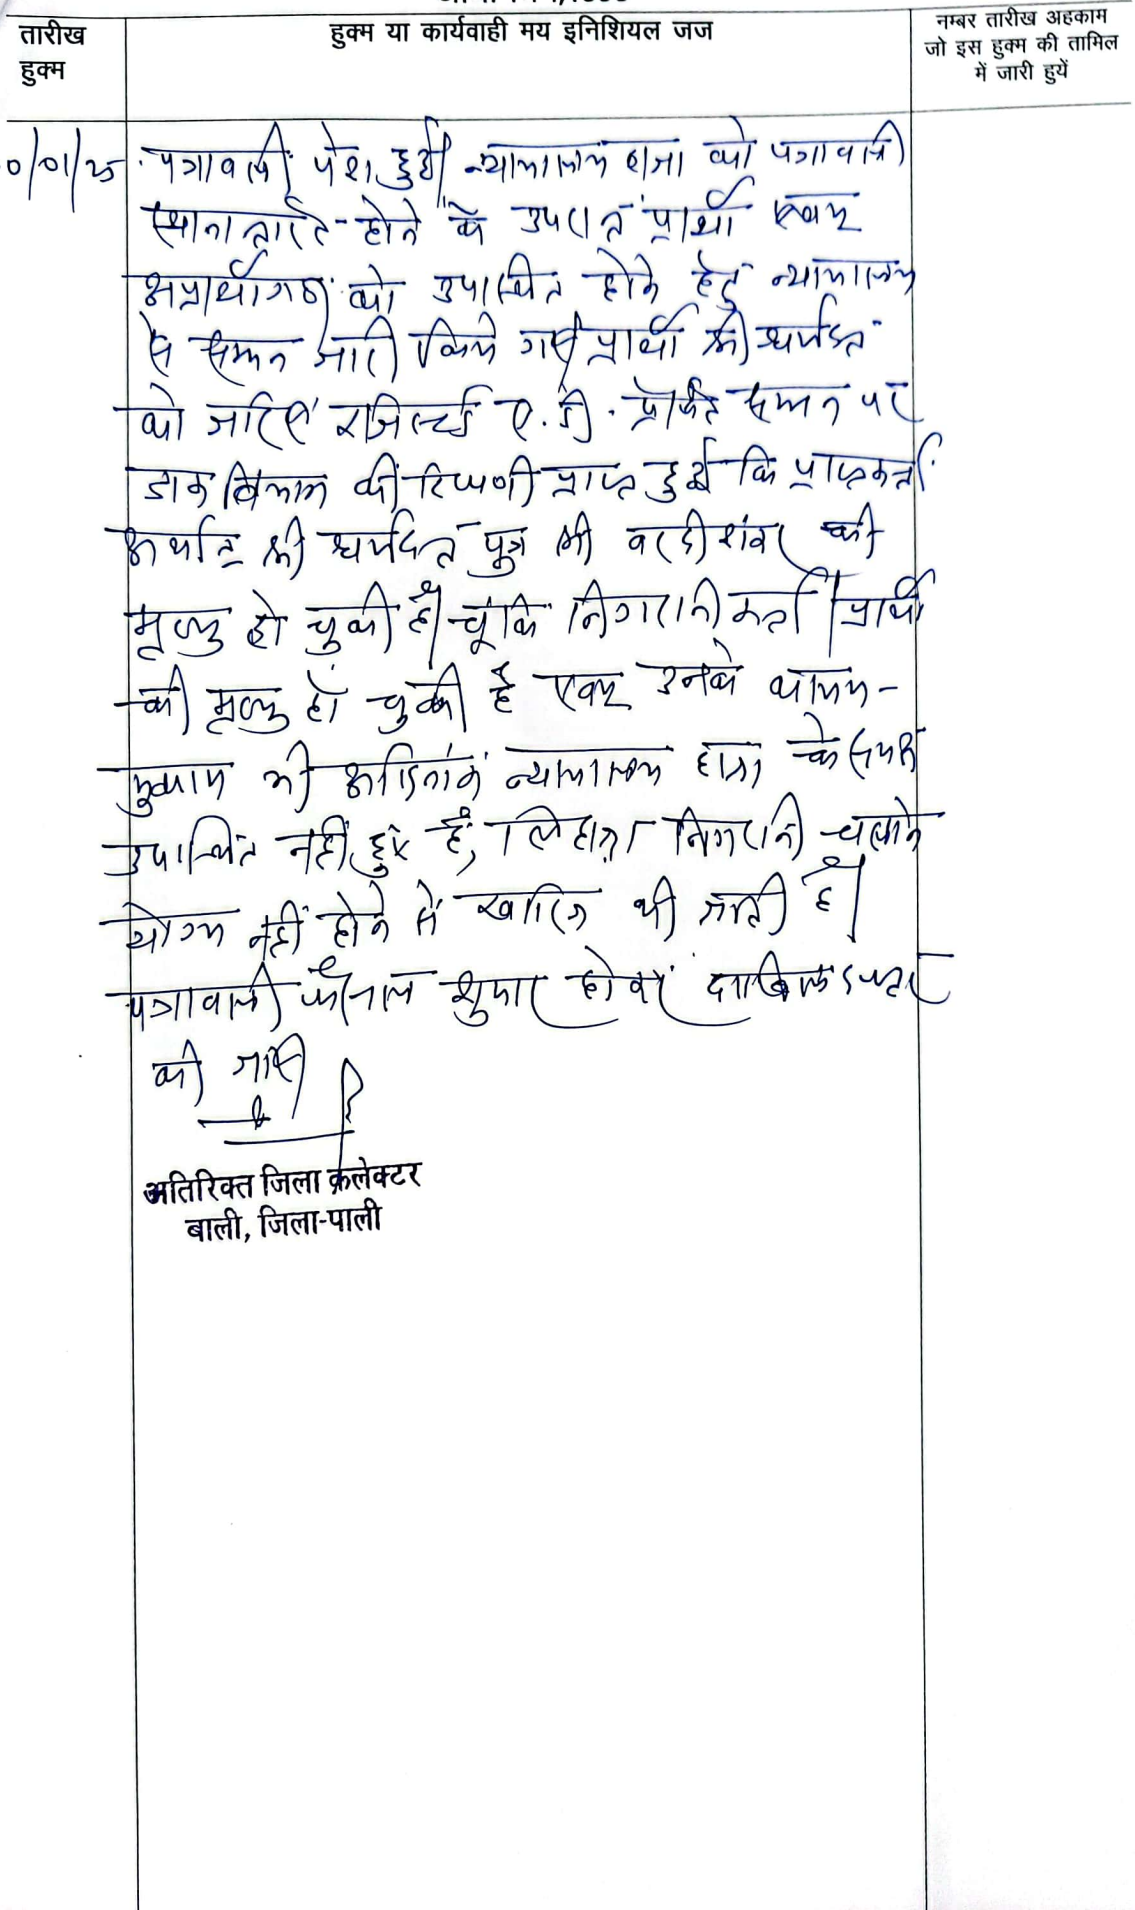 तारीख
हुक्म
हुक्म या कार्यवाही मय इनिशियल जज
नम्बर तारीख अहकाम
जो इस हुक्म की तामिल
में जारी हुयें
0/01/25 पत्रावली पेश हुई। न्यायालय हाजा को पत्रावली
स्थानान्तरित होने के उपरान्त प्रार्थी एवम्
अप्रार्थीगण को उपस्थित होने हेतु न्यायालय
से सम्मन जारी किये गए। प्रार्थी श्री धर्मदत्त
को जरिए रजिस्टर्ड ए.डी. प्रेषित सम्मन पर
डाक विभाग की टिप्पणी प्राप्त हुई कि प्राप्तकर्ता
अर्थात श्री धर्मदत्त पुत्र श्री की
मृत्यु हो चुकी है। चूंकि निगरानीकर्ता/प्रार्थी
की मृत्यु हो चुकी है एवम् उनके कायम-
मुकाम भी आदिनांक न्यायालय हाजा के समक्ष
उपस्थित नहीं हुए हैं, लिहाजा निगरानी चलने
योग्य नहीं होने से खारिज की जाती है।
पत्रावली फैसल शुमार होकर दाखिल दफ्तर
की जावे।
अतिरिक्त जिला कलेक्टर
बाली, जिला-पाली